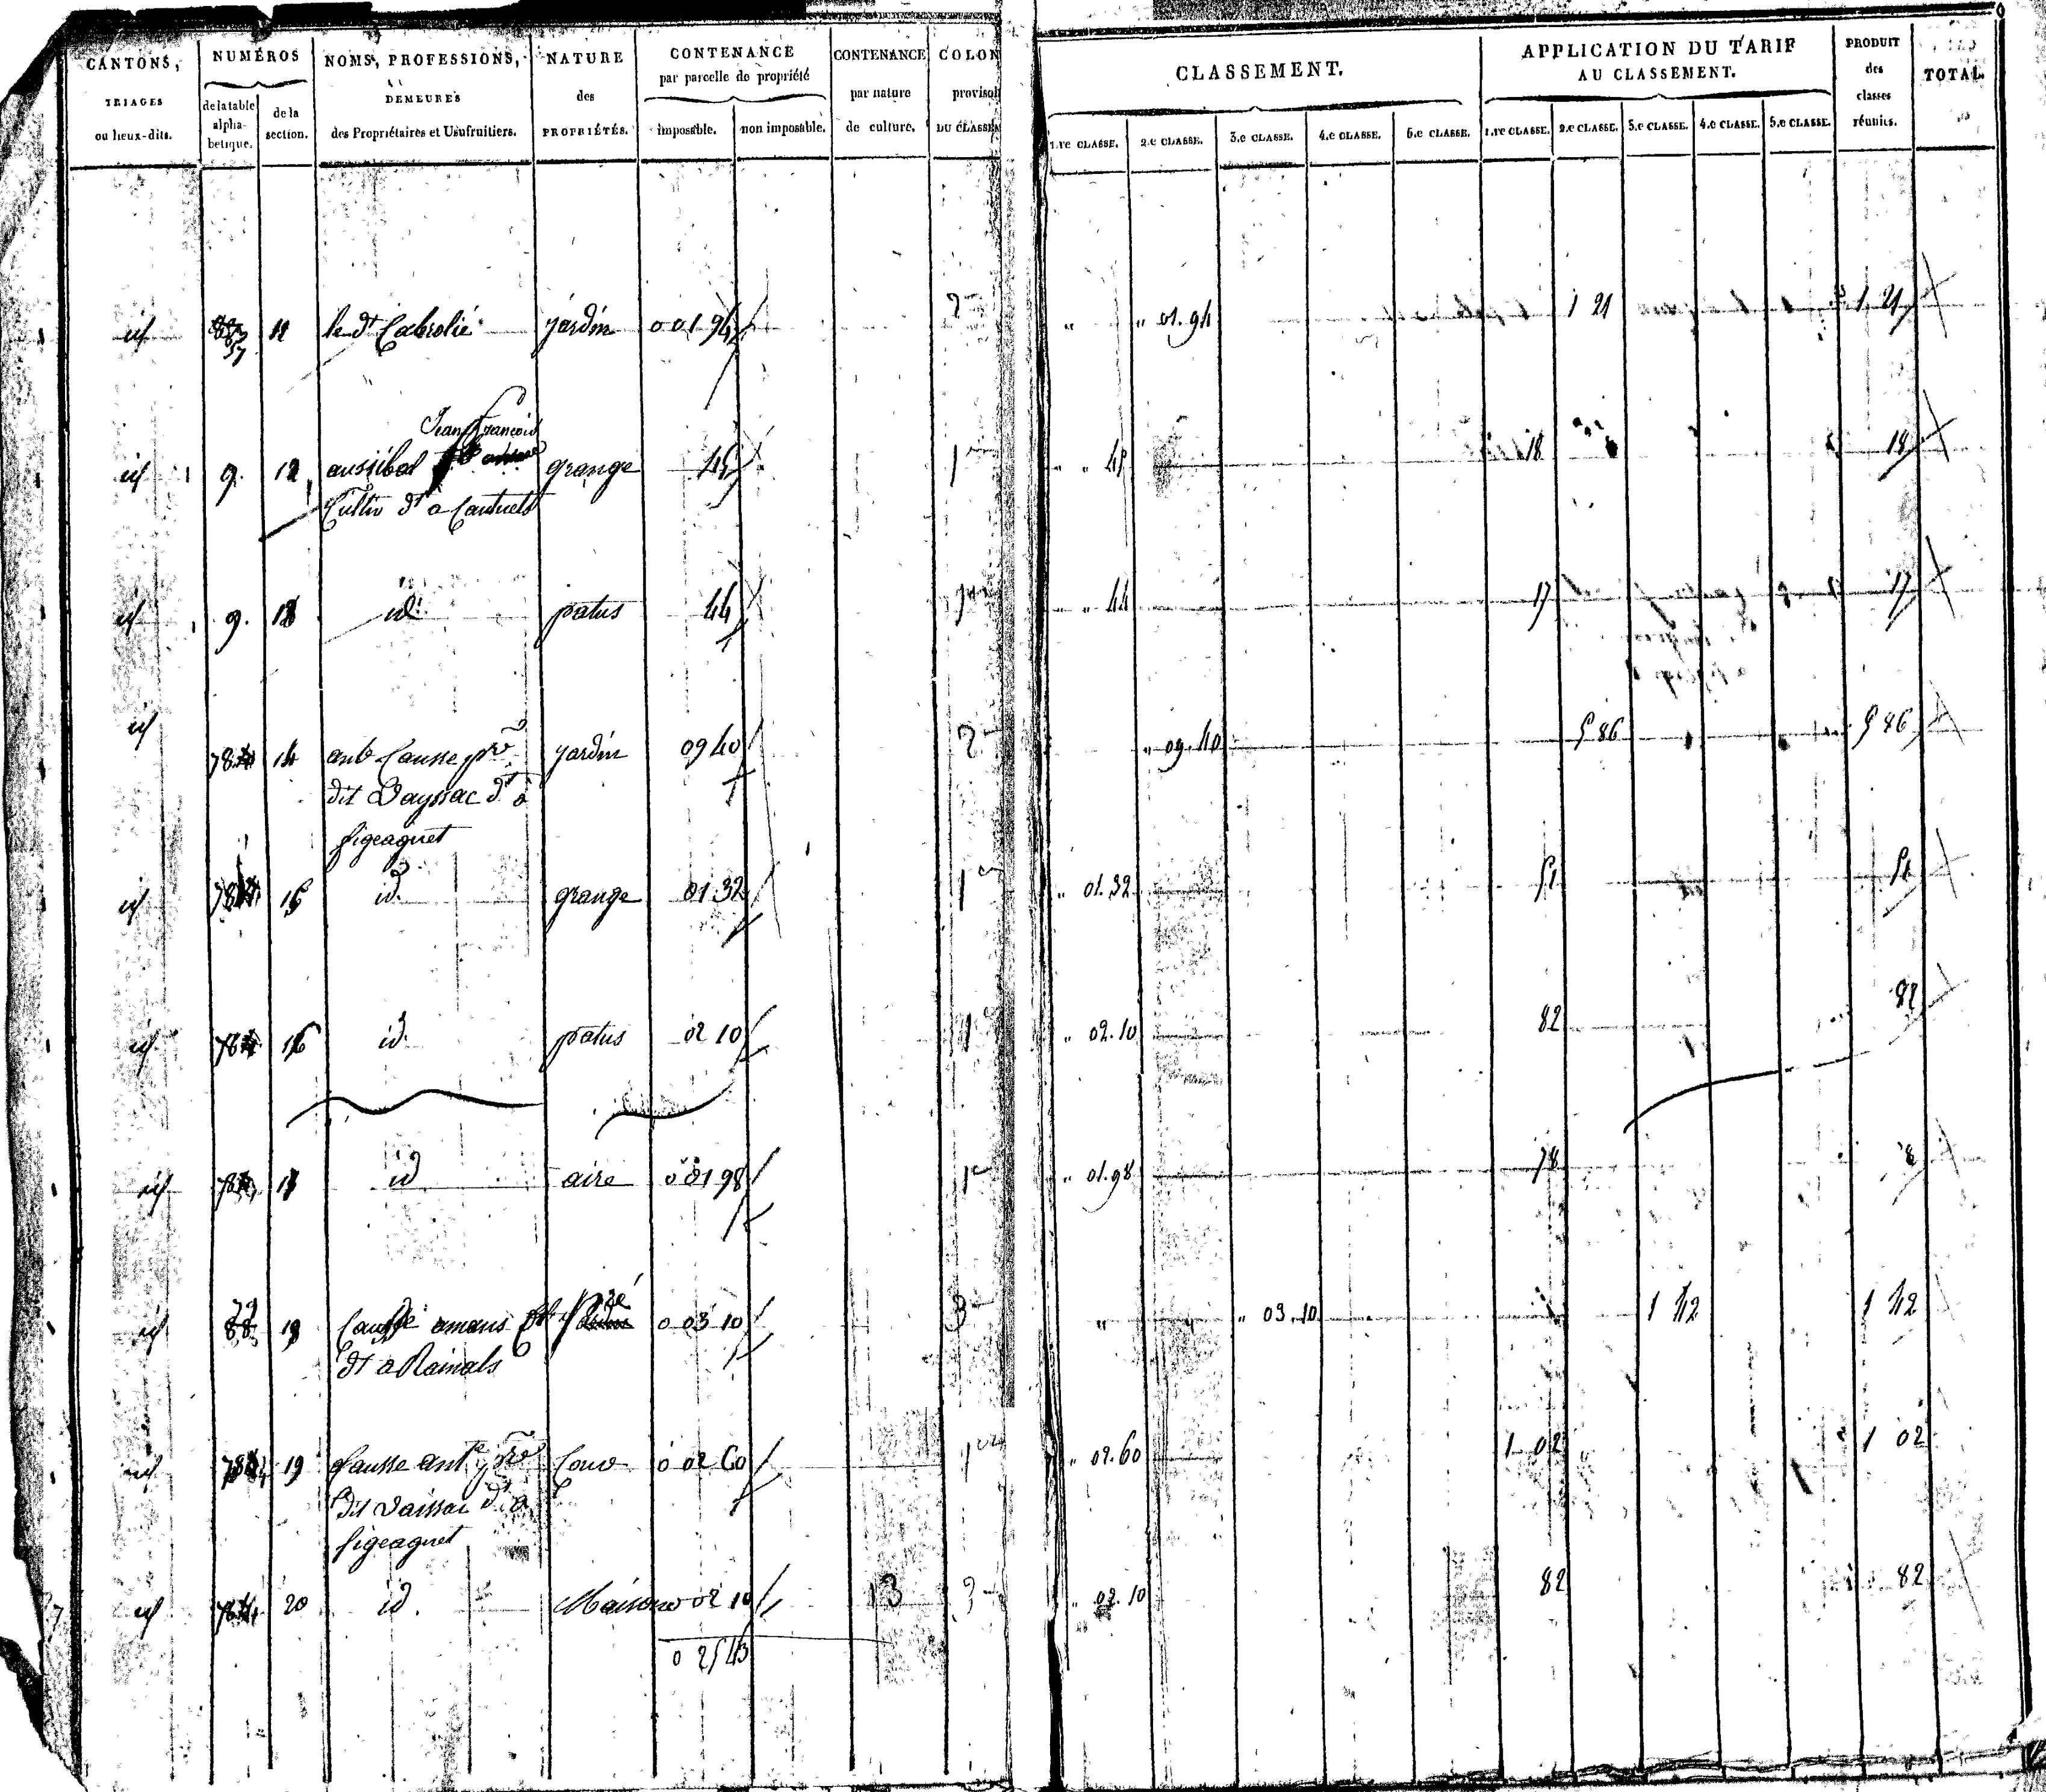 CANTONS, TRIAGES ou lieux-dits. | NUMÉROS de la table alphabétique. | de la section. | NOMS, PROFESSIONS, DEMEURES des Propriétaires et Usufruitiers. | NATURE des PROPRIÉTÉS. | CONTENANCE par parcelle de propriété imposable. | non imposable. | CONTENANCE par nature de culture. | COLON provisoi DU CLASSEM
CLASSEMENT. 1.re CLASSE. | 2.e CLASSE. | 3.e CLASSE. | 4.e CLASSE. | 5.e CLASSE. | APPLICATION DU TARIF AU CLASSEMENT. 1.re CLASSE. | 2.e CLASSE. | 3.e CLASSE. | 4.e CLASSE. | 5.e CLASSE. | PRODUIT des classes réunies. | TOTAL.
id 57 11 le dt Cabrolié jardin 0 01 94 2 " " 01.94 1 21 1 21
Jean François
id 9. 12 aussibal grange 45 1 " " 45 18 18
Cultiv dt a Cantuels
id 9. 13 id. patus 44 1 " " 44 17 17
id 78 14 ant Causse pre jardin 09 40 2 " 09.40 5 86 5 86
dit Vayssac dt à
figeaguet
id 78 15 id. grange 01 32 1 " 01.32 51 51
id 78 16 id. patus 02 10 1 " 02.10 82 82
id 78 id aire 0 01 98 1 " 01.98 78
id 79 18 Causse amans Pré 0 03 10 3 " " 03.10 1 42 1 42
dt a Rainals
id 78 19 Causse ant pre Cour 0 02 60 1 " 02.60 1 02 1 02
dit Vaissac dt a
figeaguet
id 78 20 id. Maison 0 02 10 13 3 " 02.10 82 82
0 25 43